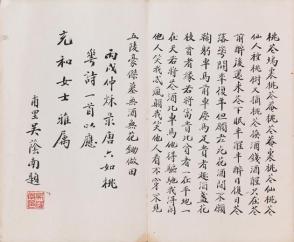 桃花塢裏桃花菴桃花菴裏桃花仙桃花
仙人種桃樹又摘桃花換酒錢酒醒只在花
前醉後還来花下眠半醒半醉日復日花
落花開年復年但願老死花酒間不願
鞠躬車馬前車塵馬足貴者趣酒盞花
枝貧者緣若將富貴比貧者一在平地一
在天若將花酒比車馬他得驅馳我得閒
他人笑我忒風顛我笑他人看不穿不見
五陵豪傑墓無酒無花鋤做田
丙戌仲秌录唐六如桃
花詩一首以應
充和女士雅屬
甫里吳蔭南題